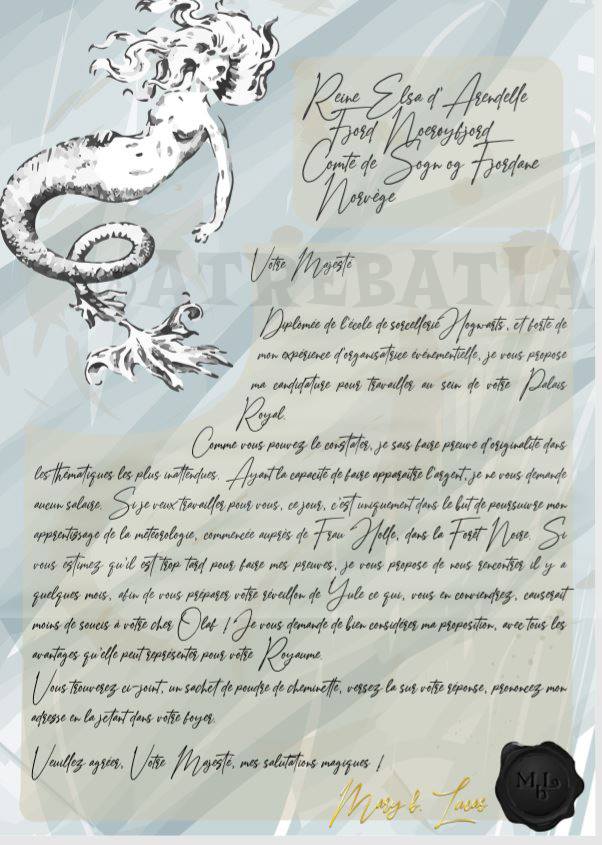 Reine Elsa d'Arendelle
Fjord Noeroyfjord
Comté de Sogn og Fjordane
Norvège
ATREBATIA
Votre Majesté
Diplômée de l'école de sorcellerie Hogwarts, et forte de
mon expérience d'organisatrice événementielle, je vous propose
ma candidature pour travailler au sein de votre Palais
Royal.
Comme vous pouvez le constater, je sais faire preuve d'originalité dans
les thématiques les plus inattendues. Ayant la capacité de faire apparaitre l'argent, je ne vous demande
aucun salaire. Si je veux travailler pour vous, ce jour, c'est uniquement dans le but de poursuivre mon
apprentissage de la météorologie, commencée auprès de Frau Holle, dans la Forêt Noire. Si
vous estimez qu'il est trop tard pour faire mes preuves, je vous propose de nous rencontrer il y a
quelques mois, afin de vous préparer votre réveillon de Yule ce qui, vous en conviendrez, causerait
moins de soucis à votre cher Olaf ! Je vous demande de bien considérer ma proposition, avec tous les
avantages qu'elle peut représenter pour votre Royaume.
Vous trouverez ci-joint, un sachet de poudre de cheminette, versez la sur votre réponse, prononcez mon
adresse en la jetant dans votre foyer.
Veuillez agréer, Votre Majesté, mes salutations magiques !
Mary b. Lucas
MbL